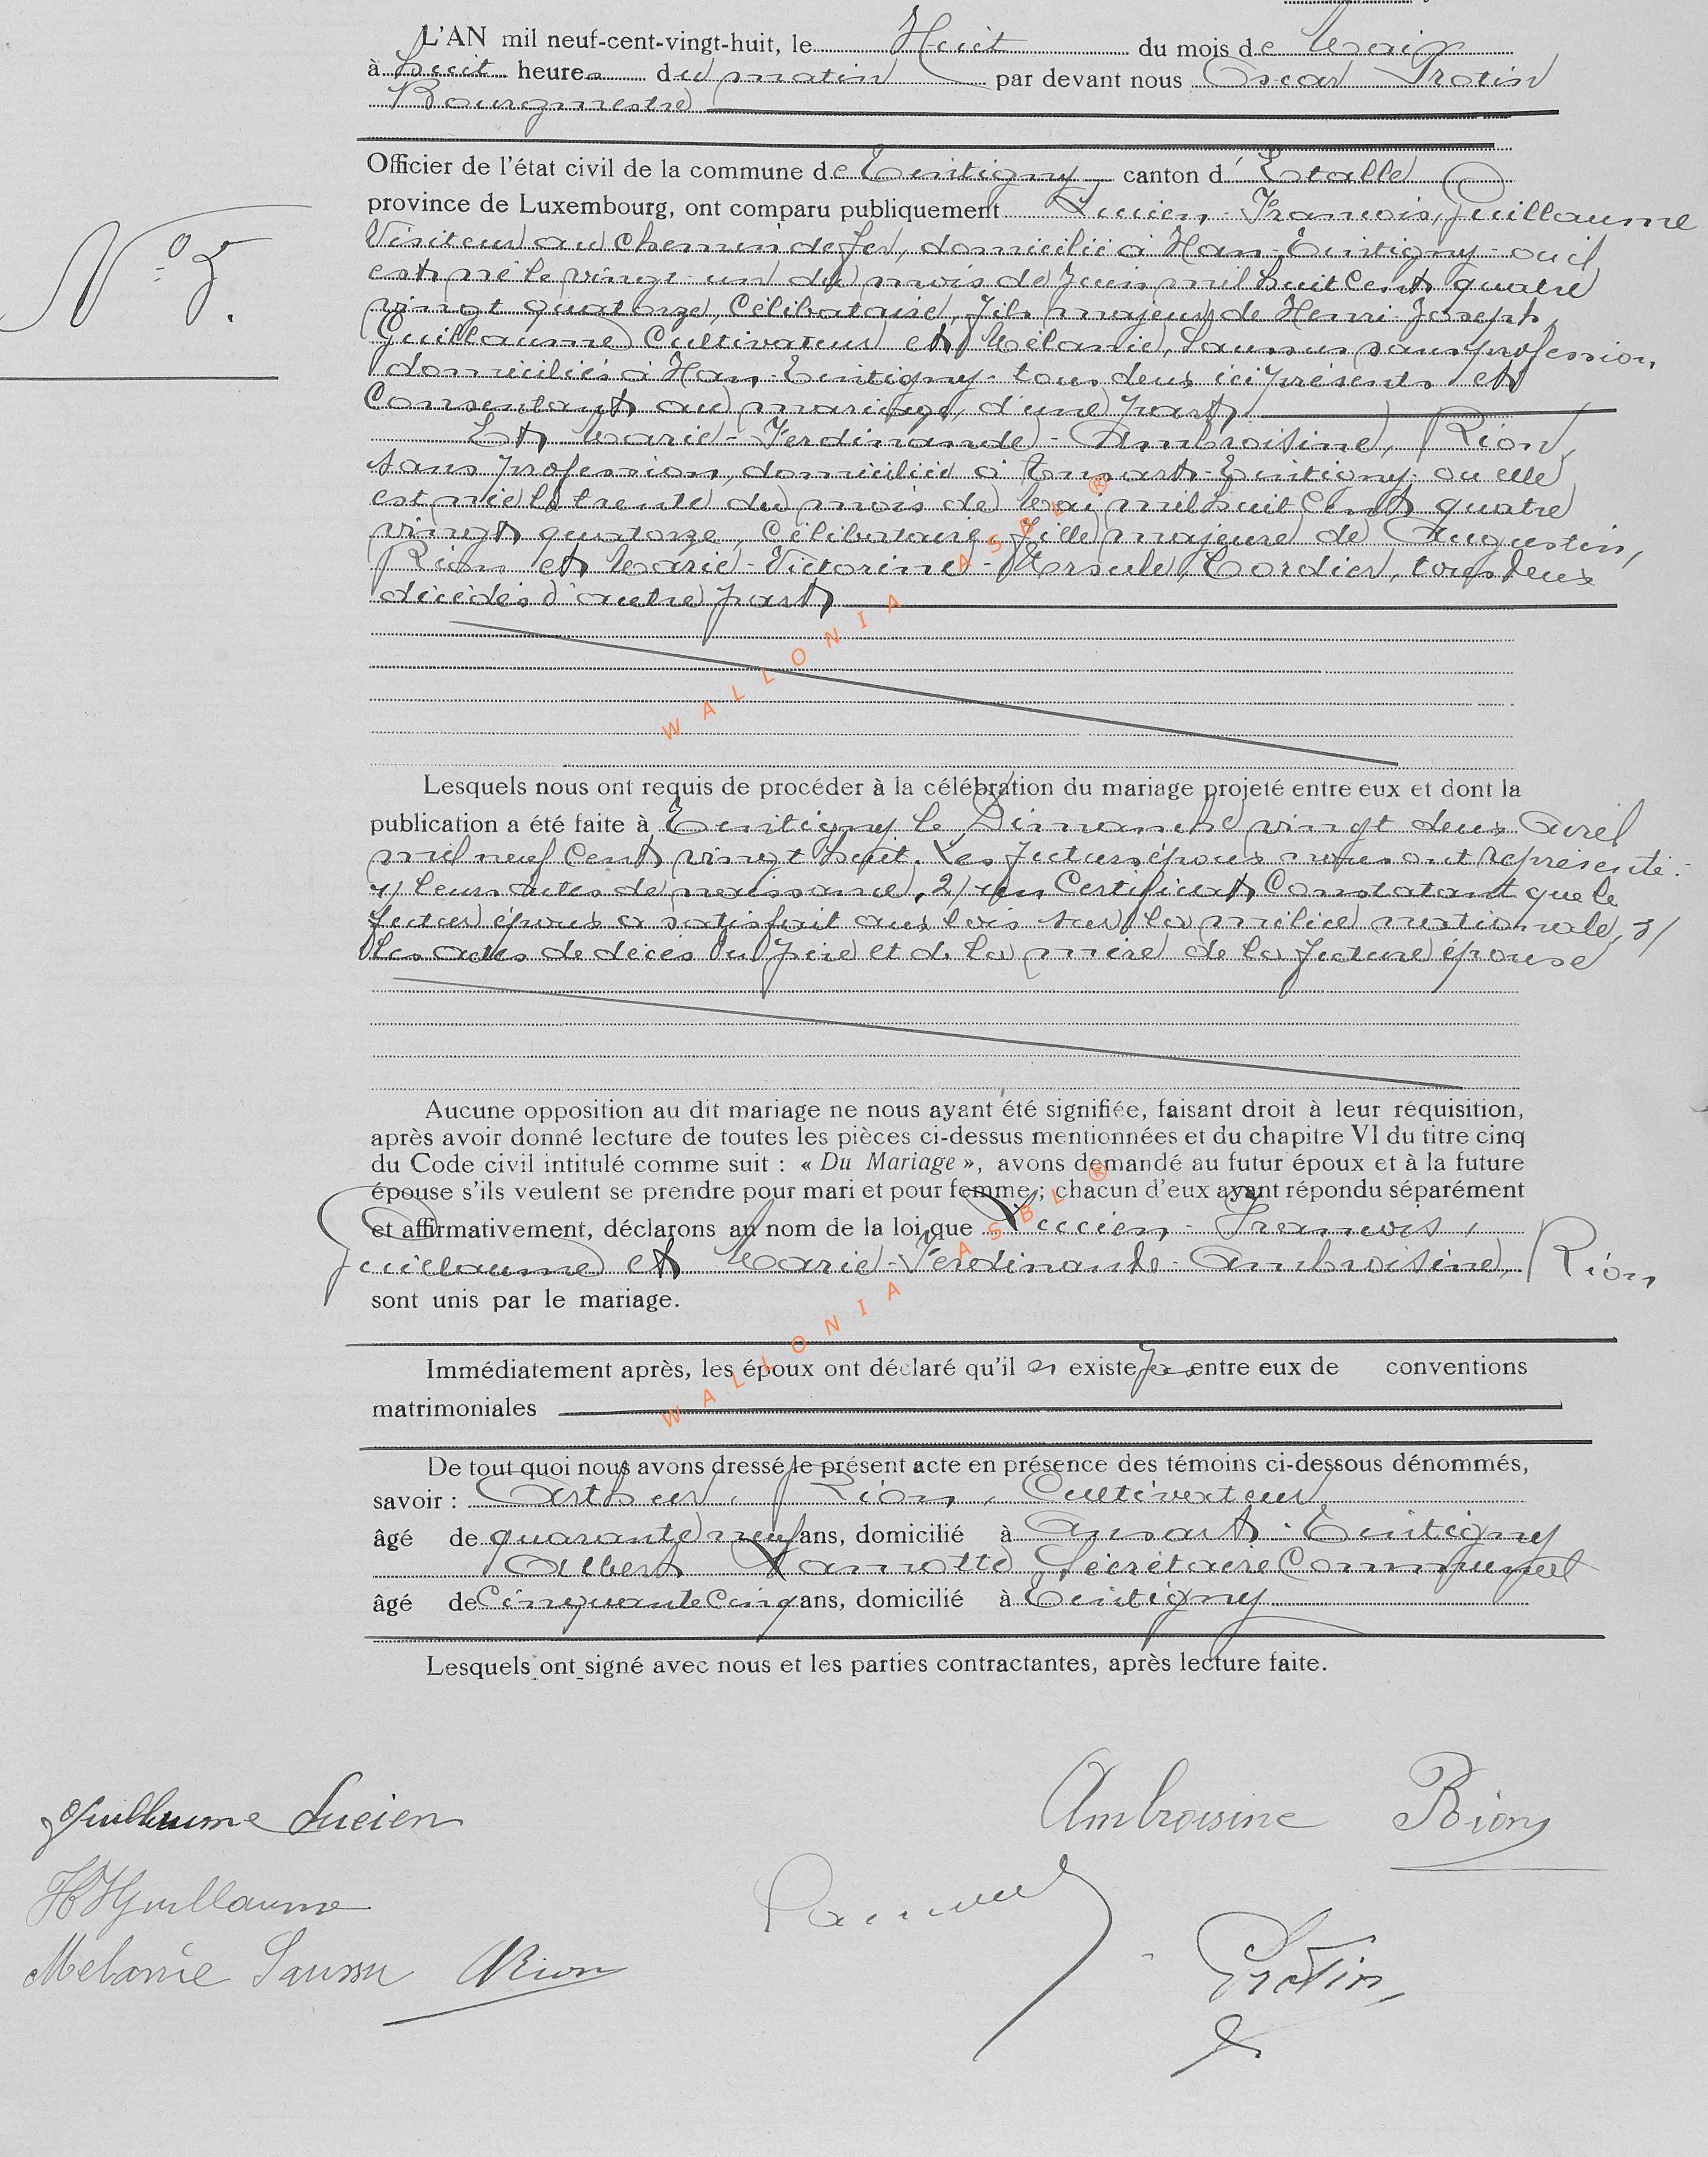 L'AN mil neuf-cent-vingt-huit, le Huit du mois de Mai
à huit heures du matin par devant nous Oscar Protin
Bourgmestre
Officier de l'état civil de la commune de Tintigny canton d'Etalle
province de Luxembourg, ont comparu publiquement Lucien-François, Guillaume
Visiteur au chemin de fer, domicilié à Han-Tintigny- où il
est né le vingt-un du mois de Juin mil huit Cent quatre
vingt quatorze, Célibataire, fils majeur de Henri-Joseph,
Guillaume Cultivateur et Mélanie, Saussus sans profession,
domiciliés à Han-Tintigny- tous deux ici présents et
Consentant au mariage, d'une part
Et Marie-Ferdinande-Ambroisine, Rion,
sans profession, domiciliée à Ansart-Tintigny- où elle
est née le trente du mois de Mai mil huit Cent quatre
vingt quatorze, Célibataire, fille majeure de Augustin,
Rion et Marie-Victorine-Ursule, Cordier, tous deux
décédés d'autre part
Lesquels nous ont requis de procéder à la célébration du mariage projeté entre eux et dont la
publication a été faite à Tintigny le Dimanche vingt deux Avril
mil neuf Cent vingt huit. Les futurs époux nous ont représenté:
1/ leurs actes de naissance, 2/ un Certificat Constatant que le
futur époux a satisfait aux lois sur la milice nationale, 3/
les actes de décès du père et de la mère de la future épouse
N° 5.
Aucune opposition au dit mariage ne nous ayant été signifiée, faisant droit à leur réquisition,
après avoir donné lecture de toutes les pièces ci-dessus mentionnées et du chapitre VI du titre cinq
du Code civil intitulé comme suit : « Du Mariage », avons demandé au futur époux et à la future
épouse s'ils veulent se prendre pour mari et pour femme ; chacun d'eux ayant répondu séparément
et affirmativement, déclarons au nom de la loi que Lucien-François,
Guillaume et Marie-Ferdinande-Ambroisine, Rion
sont unis par le mariage.
Immédiatement après, les époux ont déclaré qu'il n existe pas entre eux de conventions
matrimoniales
De tout quoi nous avons dressé le présent acte en présence des témoins ci-dessous dénommés,
savoir : Arthur, Rion, Cultivateur
âgé de quarante neuf ans, domicilié à Ansart-Tintigny
Albert Lamotte Secrétaire Communal
âgé de Cinquante Cinq ans, domicilié à Tintigny
Lesquels ont signé avec nous et les parties contractantes, après lecture faite.
Guillaume Lucien
Ambroisine Rion
HJ Guillaume
Melanie Saussu ARion
Protin
WALLONIA ASBL ®
WALLONIA ASBL ®